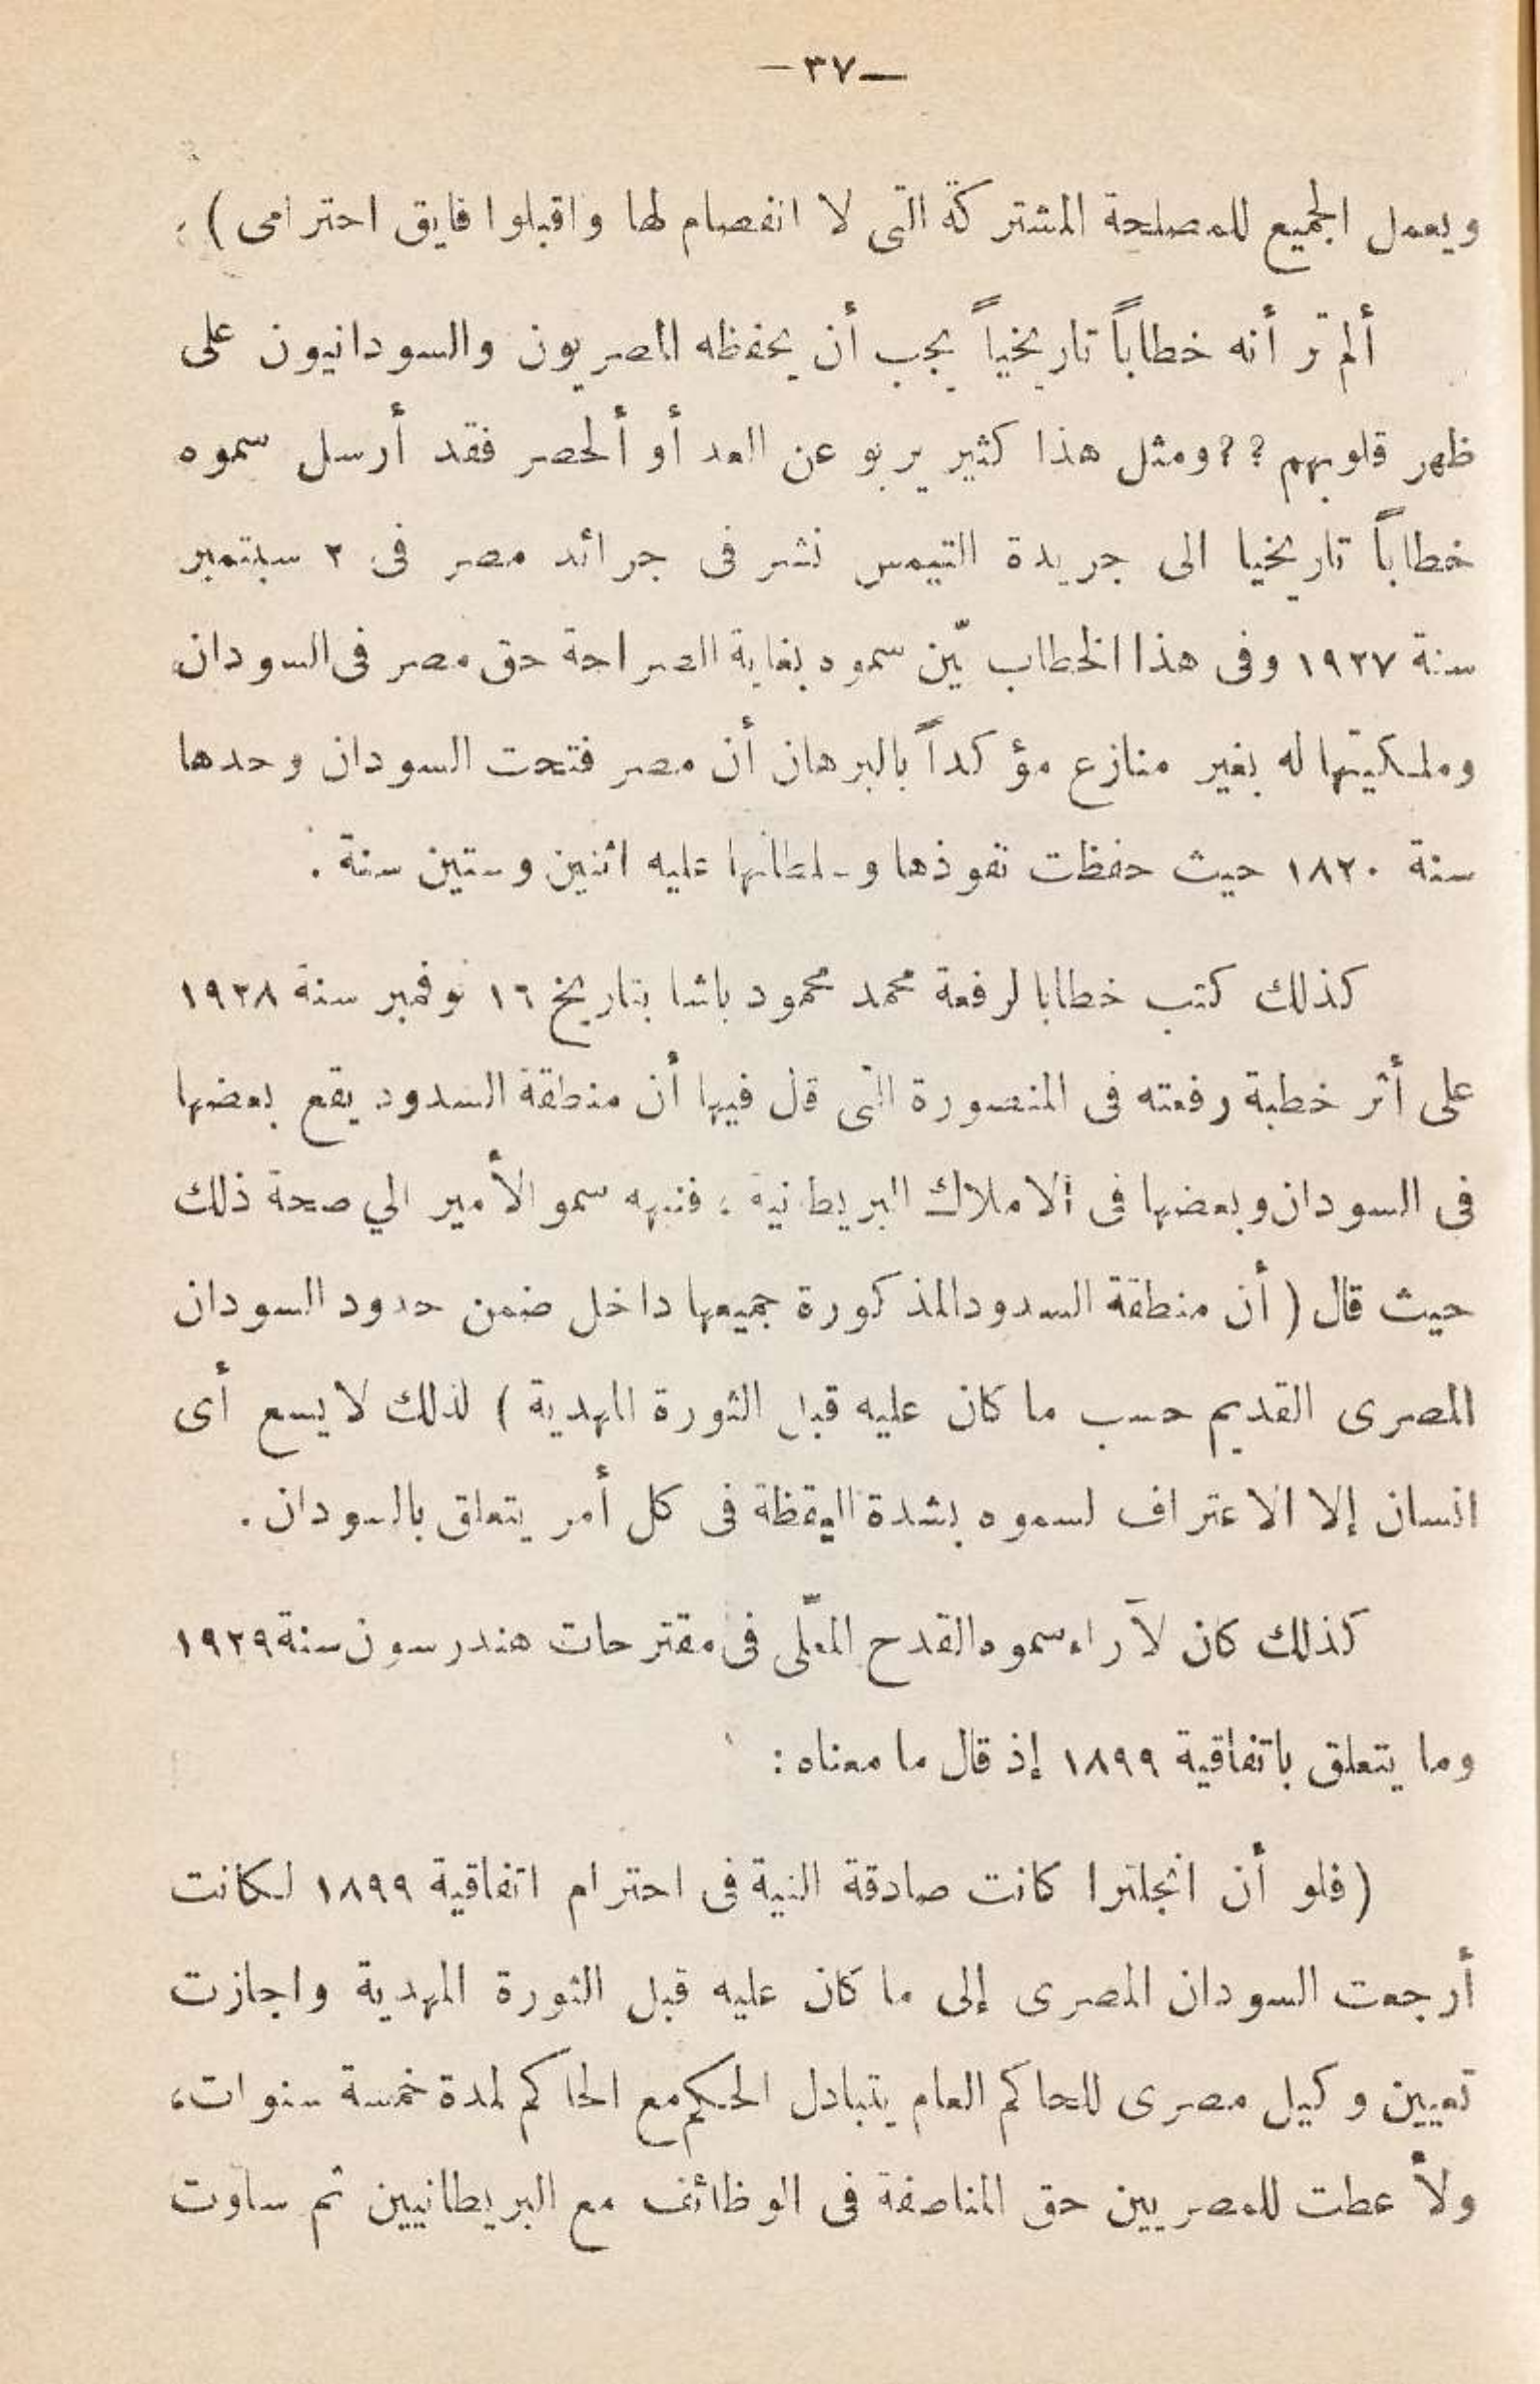 —٣٧—
ويعمل الجميع للمصلحة المشتركة التى لا انفصام لها واقبلوا فايق احترامى) .
ألم تر أنه خطاباً تاريخياً يجب أن يحفظه المصريون والسودانيون على
ظهر قلوبهم ؟؟ ومثل هذا كثير يربو عن العد أو ألحصر فقد أرسل سموه
خطاباً تاريخيا الى جريدة التيمس نشر فى جرائد مصر فى ٢ سبتمبر
سنة ١٩٢٧ وفى هذا الخطاب بيّن سموه بغاية الصراحة حق مصر فى السودان
وملكيتها له بغير منازع مؤكداً بالبرهان أن مصر فتحت السودان وحدها
سنة ١٨٢٠ حيث حفظت نفوذها وسلطانها عليه اثنين وستين سنة .
كذلك كتب خطابا لرفعة محمد محمود باشا بتاريخ ١٦ نوفمبر سنة ١٩٢٨
على أثر خطبة رفعته فى المنصورة التى قال فيها أن منطقة السدود يقع بعضها
فى السودان وبعضها فى ألاملاك البريطانية . فنبهه سمو الأمير الي صحة ذلك
حيث قال ( أن منطقة السدود المذكورة جميعها داخل ضمن حدود السودان
المصرى القديم حسب ما كان عليه قبل الثورة المهدية ) لذلك لا يسع أى
انسان إلا الاعتراف لسموه بشدة اليقظة فى كل أمر يتعلق بالسودان .
كذلك كان لآراء سموه القدح المعلّى فى مقترحات هندرسون سنة ١٩٢٩
وما يتعلق باتفاقية ١٨٩٩ إذ قال ما معناه :
(فلو أن انجلترا كانت صادقة النية فى احترام اتفاقية ١٨٩٩ لكانت
أرجعت السودان المصرى إلى ما كان عليه قبل الثورة المهدية واجازت
تعيين وكيل مصرى للحاكم العام يتبادل الحكم مع الحاكم لمدة خمسة سنوات،
ولأعطت للمصريين حق المناصفة فى الوظائف مع البريطانيين ثم ساوت